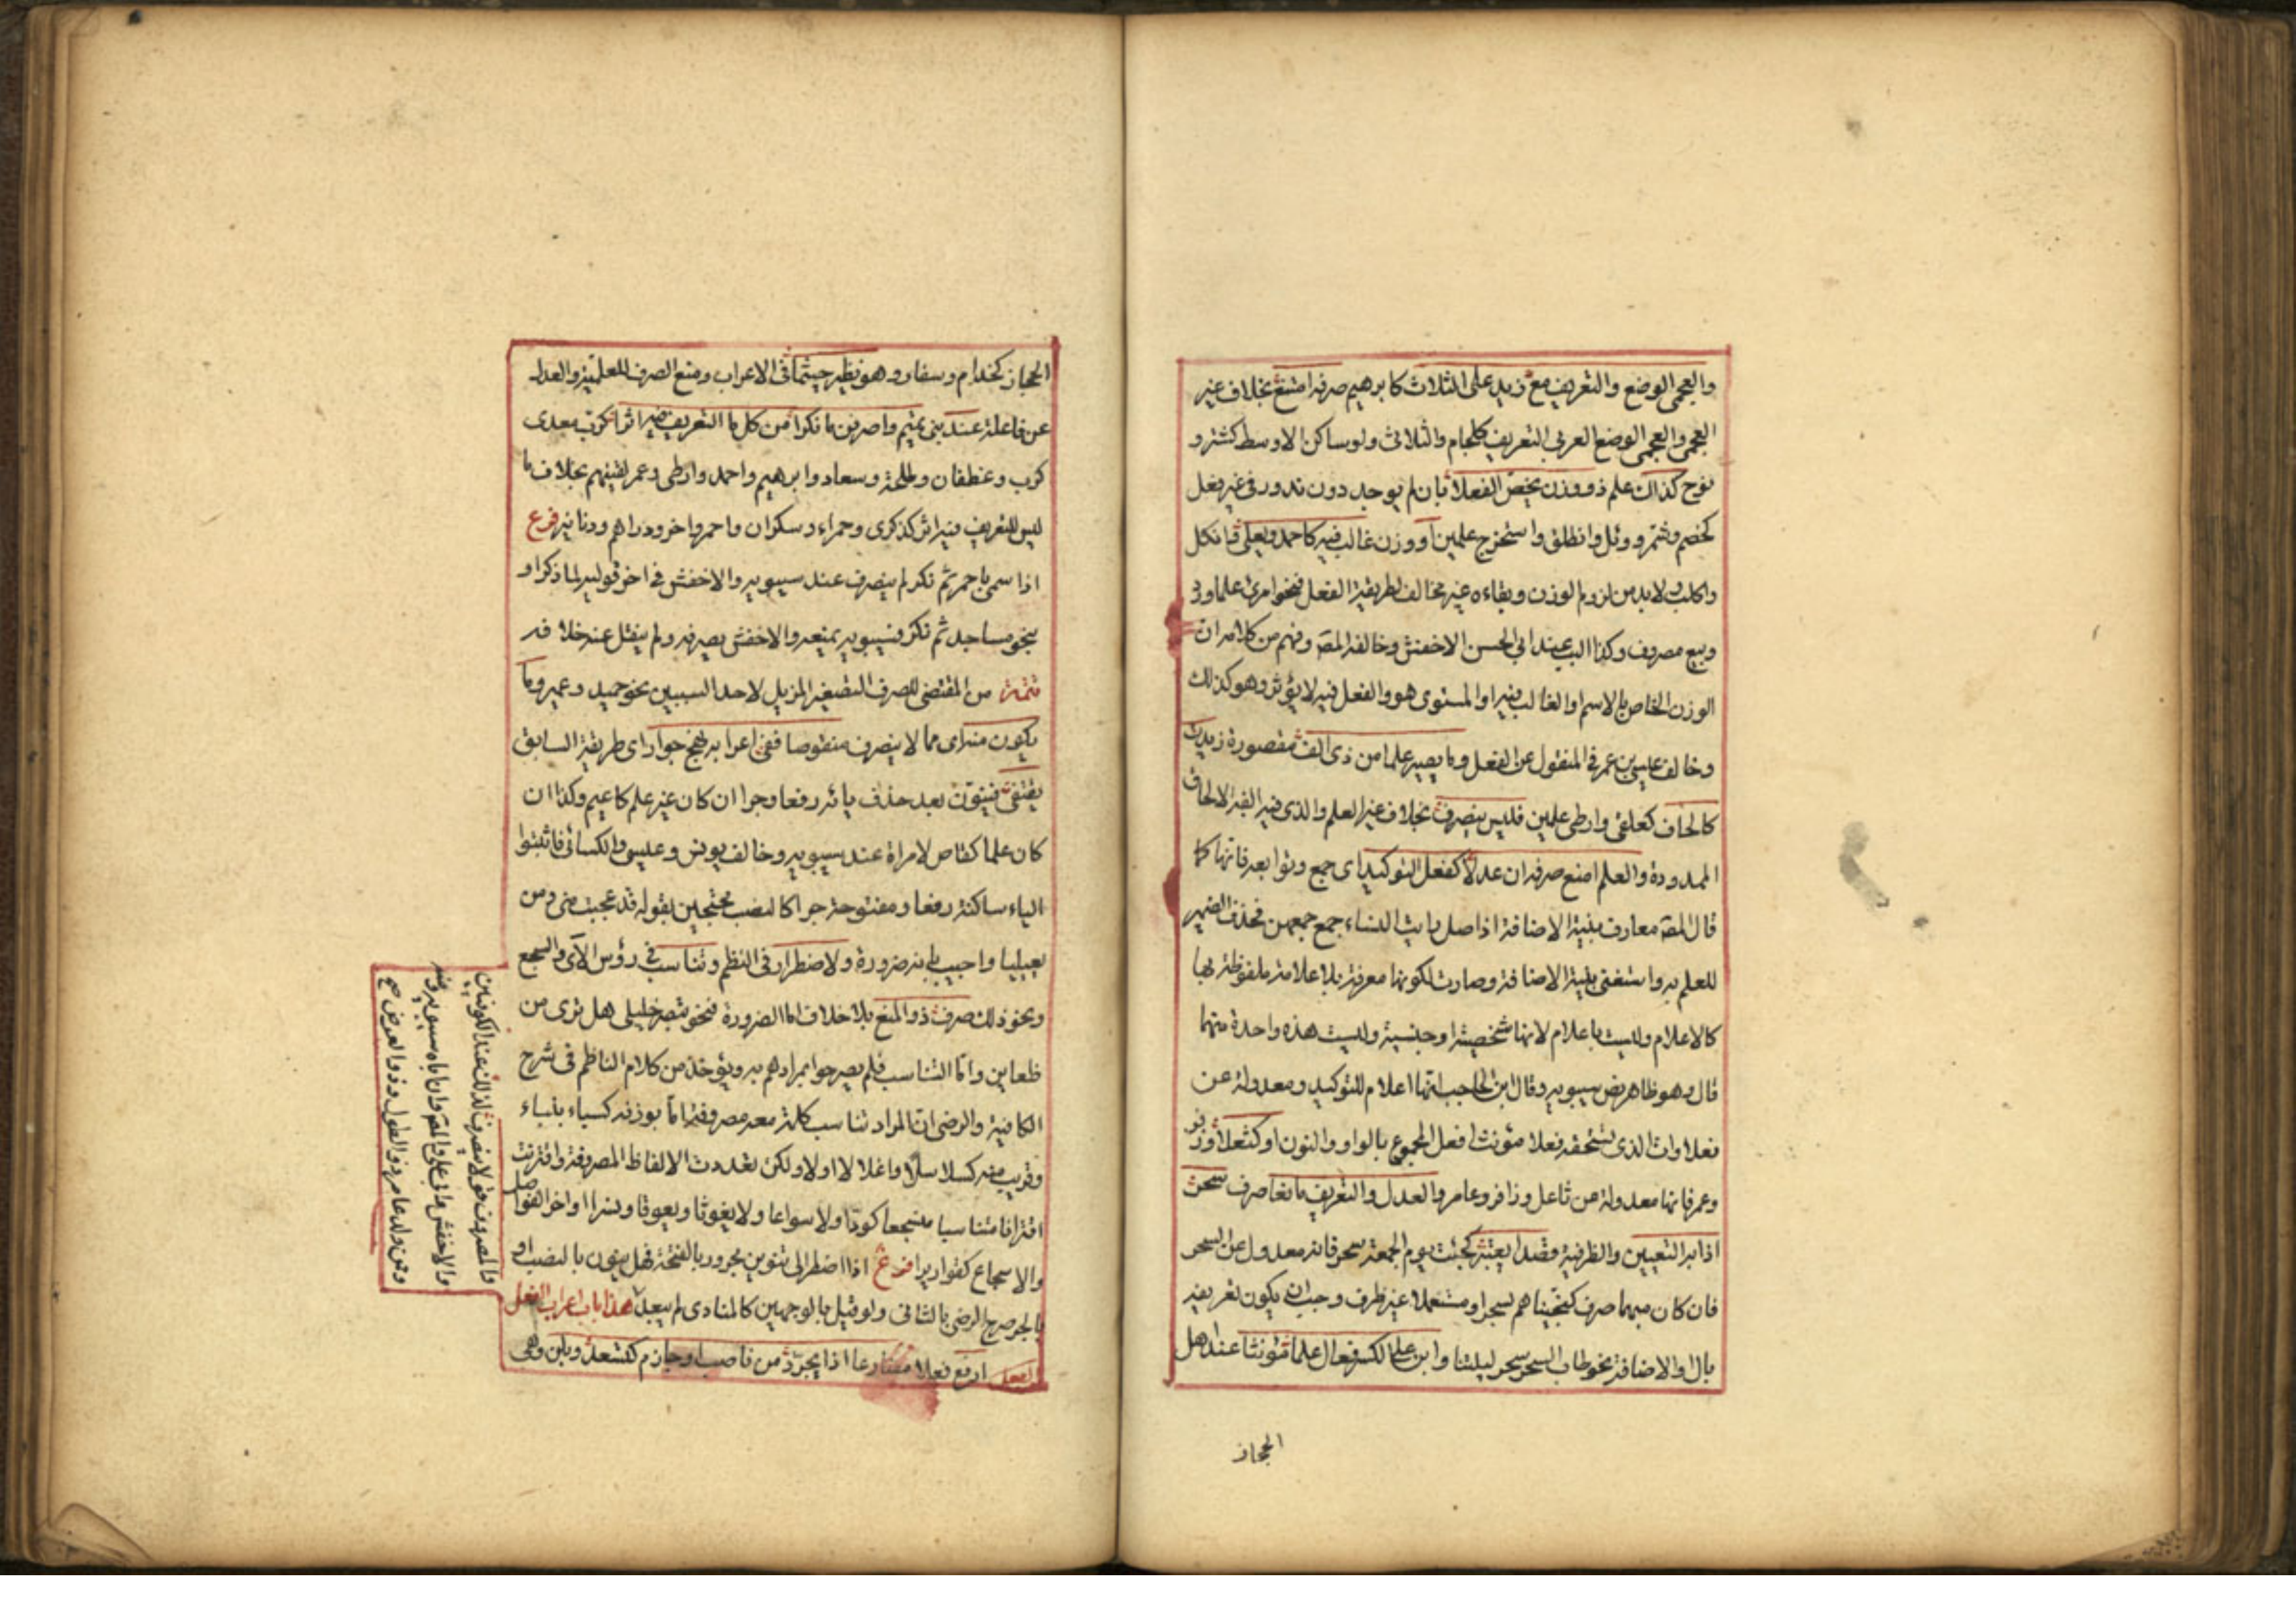 والعجمي الوضع والتعريف مع زيد على الثلاث كابرهيم صرفه امتنع بخلاف غير
العجمي والعجمي الوضع العربي التعريف كلجام والثلاثي ولو ساكن الاوسط كشتر و
نوح كذاك علم ذو وزن يخص الفعلا بان لم يوجد دون ندور في غير فعل
كخضم وشمر ودئل وانطلق واستخرج علمين او وزن غالب فيه كاحمد ويعلى وافكل
واكلب ولابد من لزوم الوزن وبقاءه غير مخالف لطريقة الفعل فنحو امرئ علما ورد
وبيع مصروف وكذا البب عند ابي الحسن الاخفش وخالفه المص وفهم من كلامه ان
الوزن الخاص بالاسم او الغالب فيه او المستوى هو والفعل فيه لا يؤثر وهو كذلك
وخالف عيسى بن عمر في المنقول عن الفعل وما يصير علما من ذي الف مقصورة زيدت
لالحاق كعلقى وارطى علمين فليس ينصرف بخلاف غير العلم والذي فيه الف الالحاق
الممدودة والعلم امنع صرفه ان عدلا كفعل التوكيد اي جمع وتوابعه فانها كما
قال المص معارف بنية الاضافة اذ اصل رايت النساء جمع جمعهن فحذف الضمير
للعلم به واستغنى بنية الاضافة وصارت لكونها معرفة بلا علامة ملفوظة بها
كالاعلام وليست باعلام لانها شخصية او جنسية وليست هذه واحدة منهما
قال وهو ظاهر نص سيبويه وقال ابن الحاجب انها اعلام للتوكيد ومعدولة عن
فعلاوات الذي يستحقه فعلا مؤنث افعل المجموع بالواو والنون او كثعلا وزفر
وعمر فانها معدولة عن ثاعل وزافر وعامر والعدل والتعريف مانعا صرف سحر
اذا به التعيين والظرفية قصدا يعتبر كجئت يوم الجمعة سحر فانه معدول عن السحر
فان كان مبهما صرف كنجيناهم بسحر او مستعملا غير ظرف وجب ان يكون تعريفه
بال او الاضافة نحو طاب السحر سحر ليلتنا وابن على الكسر فعال علما مؤنثا عند اهل
الحجاز
الحجاز كحذام وسفار وهو نظير جشما في الاعراب ومنع الصرف للعلمية والعدل
عن فاعلة عند بني تميم واصرفن ما نكرا من كل ما التعريف فيه اثرا كرب معدي
كرب وغطفان وطلحة وسعاد وابرهيم واحمد وارطى وعمر لقيتهم بخلاف ما
ليس للتعريف فيه اثر كذكرى وحمراء وسكران واحمر واخر ودراهم ودنانير فرع
اذا سمي باحمر ثم نكر لم ينصرف عند سيبويه والاخفش في اخر قوليه لما ذكر او
بنحو مساجد ثم نكر فسيبويه يمنعه والاخفش يصرفه ولم ينقل عنه خلافه
تتمة من المقتضي للصرف التصغير المزيل لاحد السببين نحو حميد وعمير وما
يكون منه اي مما لا ينصرف منقوصا ففي اعرابه نهج جوار اي طريقه السابق
يقتفى فينون بعد حذف يائه رفعا وجرا ان كان غير علم كاعيم وكذا ان
كان علما كقاض لامراة عند سيبويه وخالف يونس وعيسى والكسائي فاثبتوا
الياء ساكنة رفعا ومفتوحة جرا كالنصب محتجين بقوله قد عجبت مني ومن
يعيليا واجيب بانه ضرورة ولاضطرار في النظم وتناسب في رؤس الآي والسجع
ونحو ذلك صرف ذو المنع بلا خلاف اما الضرورة فنحو تبصر خليلي هل ترى من
ظعاين واما التناسب فلم يصرحوا بمرادهم به ويؤخذ من كلام الناظم في شرح
الكافية والرضي ان المراد تناسب كلمة معه مصروفة اما بوزنه كسباء بنباء
وقريب منه كسلاسلا واغلالا اولا ولكن تعددت الالفاظ المصروفة واقترنت
اقترانا متناسبا منسجعا كودا ولا سواعا ولا يغوثا ويعوقا ونسرا او اخر الفواصل
والاسجاع كقواريرا فرع اذا اضطر الى تنوين مجرور بالفتحة فهل ينون بالنصب او
بالجر صرح الرضي بالثاني ولو قيل بالوجهين كالمنادى لم يبعد هذا باب اعراب الفعل
الفعل ارفع فعلا مضارعا اذا يجرد من ناصب وجازم كتسعد وبابن وهي
والمصروف قد لا ينصرف لذلك عند الكوفيين
والاخفش وابي علي والمص وان اباه سيبويه ومنه
وممن ولد عامر ذو الطول وذو العرض صح